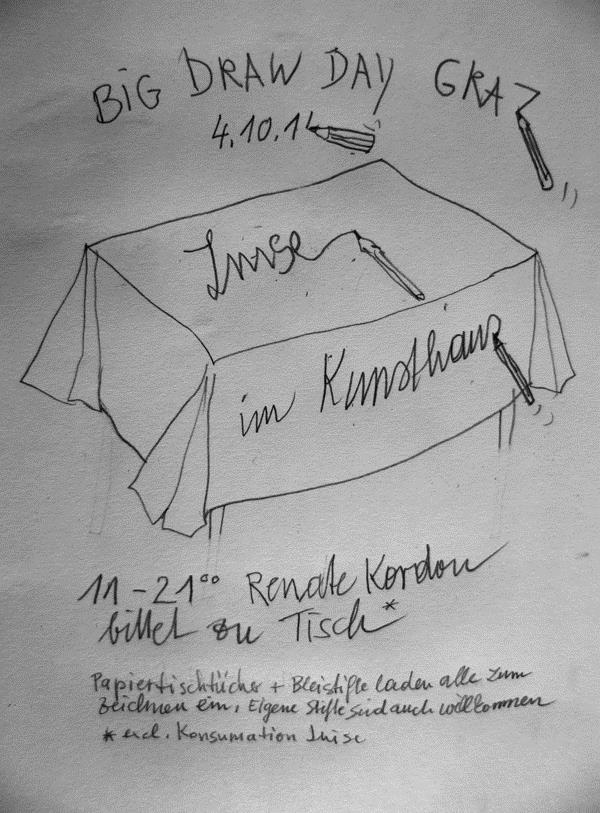 BiG DRAW DAY GRAZ
4.10.14
Luise
im Kunsthaus
11-21°° Renate Kordon
bittet zu Tisch*
Papiertischtücher + Bleistifte laden alle zum
Zeichnen ein, Eigene Stifte sind auch willkommen
* excl. Konsumation Luise